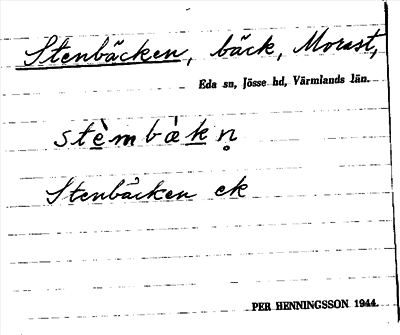 Stenbäcken, bäck, Morast,
Eda sn, Jösse hd, Värmlands län.
stè̱mbæ̀ḵn̥
Stenbäcken ek
PER HENNINGSSON 1944.